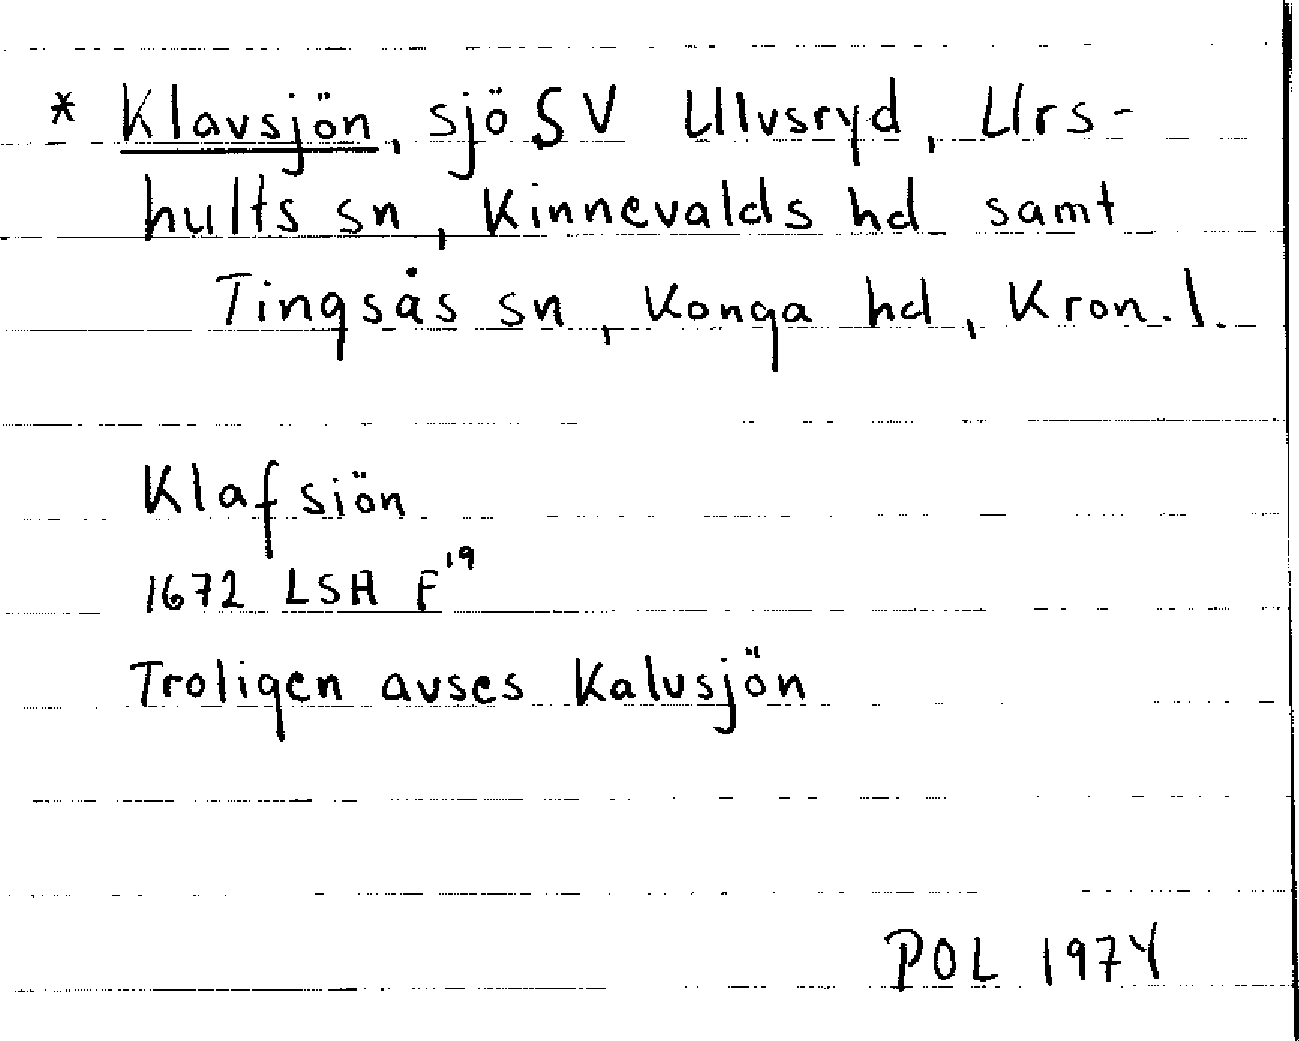 * Klavsjön, sjö SV Ulvsryd, Urs-
hults sn, Kinnevalds hd samt
Tingsås sn, Konga hd, Kron. l.
Klafsiön
1672 LSA F19
Troligen avses Kalvsjön
POL 1974